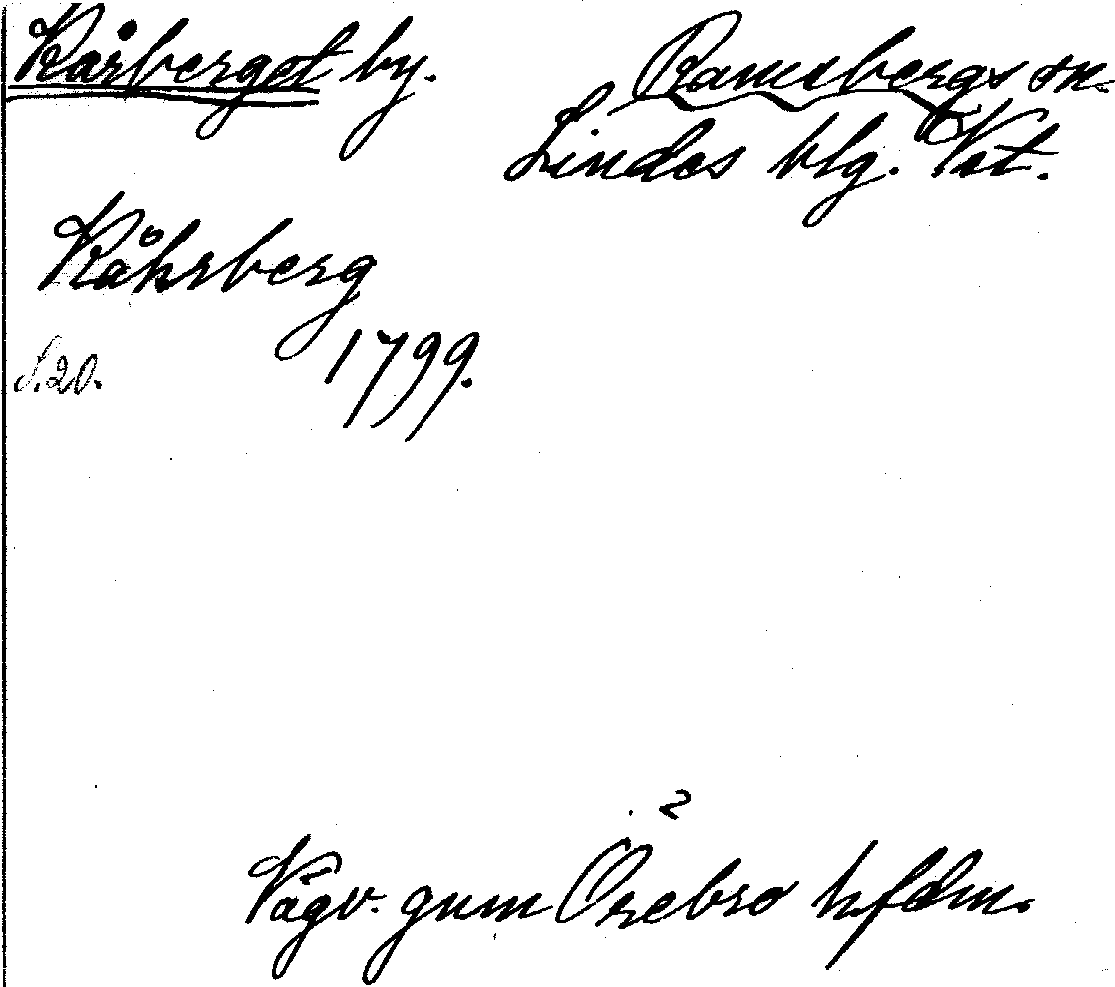 Kårberget by.
Ramsbergs sn.
Lindes blg. Vst.
Kåhrberg
1799.
S.20.
2
Vägv. gnm Örebro hfdm.